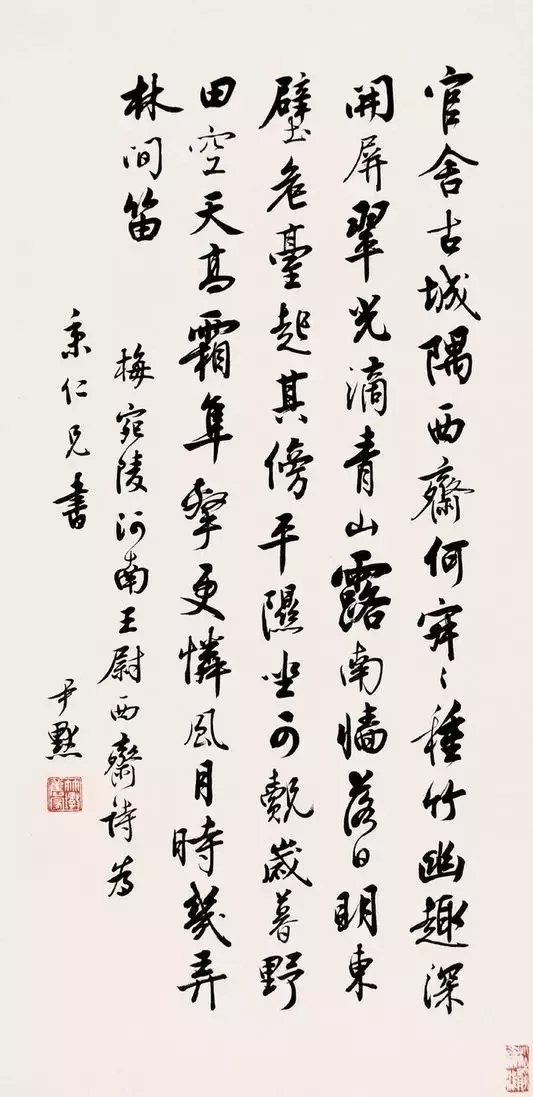 官舍古城隅西齋何寂〻種竹幽趣深
開屏翠光滴青山露南牆落日明東
壁危臺起其傍平隰坐可覿歲暮野
田空天高霜隼擊更憐風月時幾弄
林間笛
梅宛陵河南王尉西齋詩為
秉仁兄書
尹默